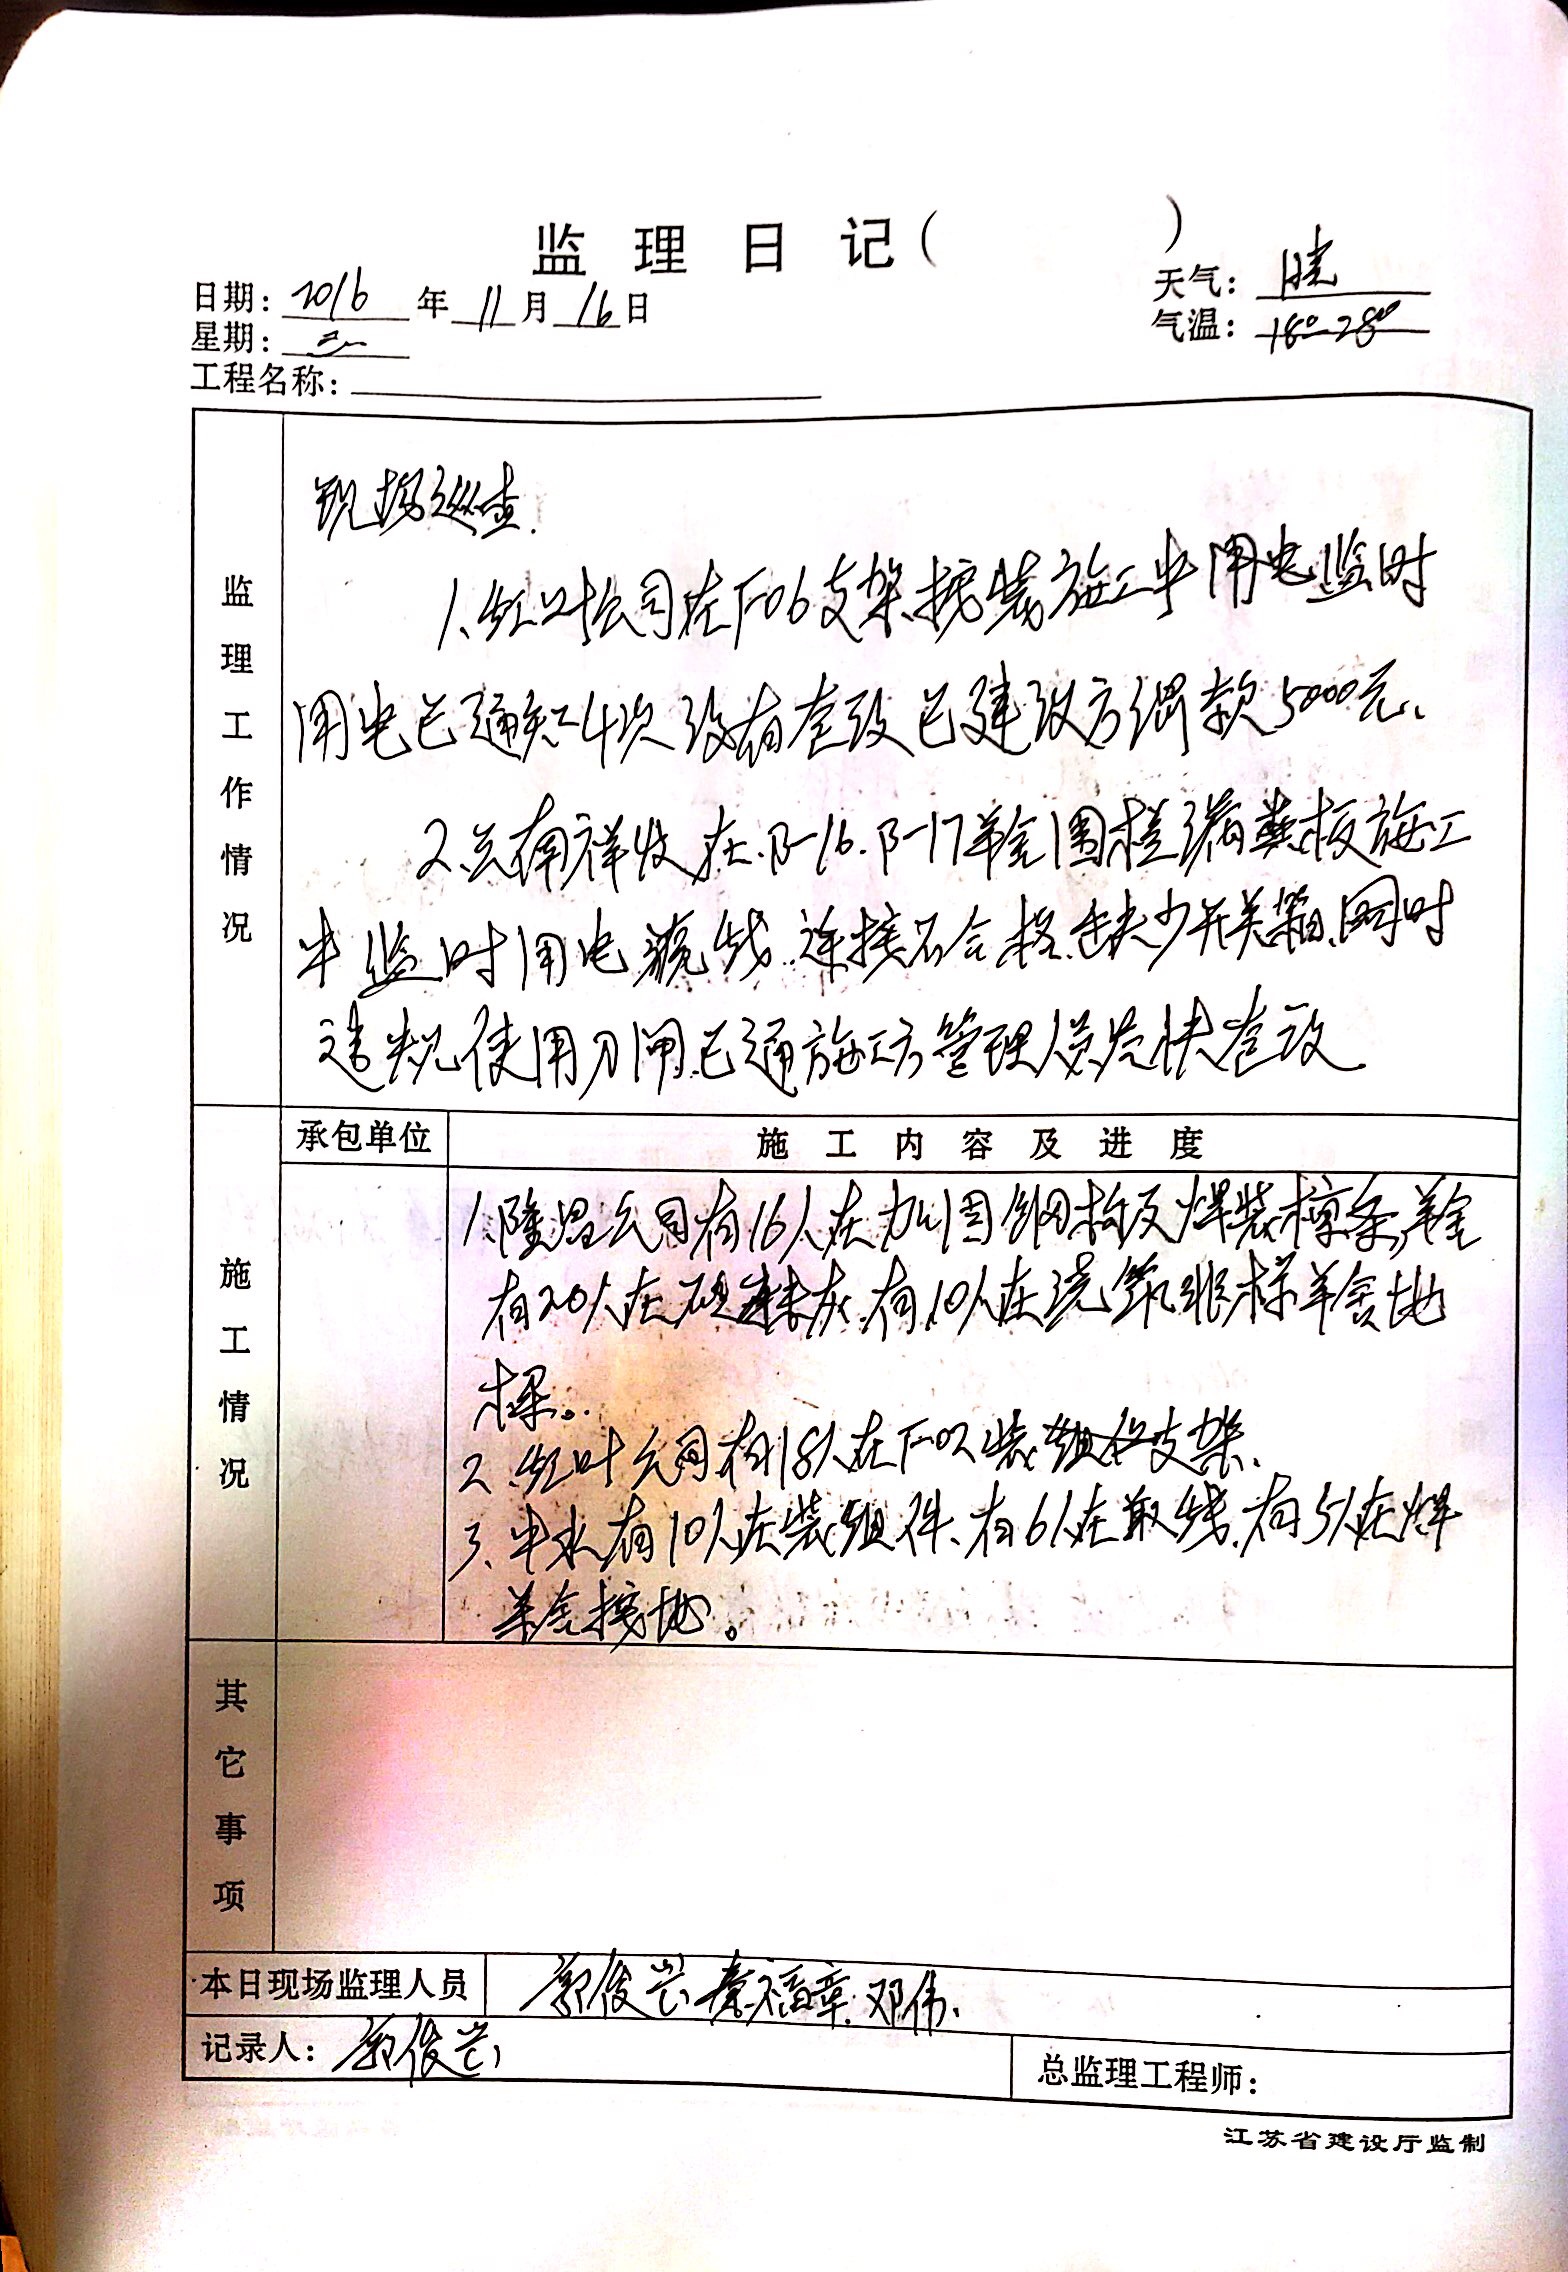 监理日记( )
日期: 2016 年 11 月 16 日
天气: 晴
星期: 三
气温: 18°-28°
工程名称:
监理工作情况
现场巡查.
1、红叶公司在F-06支架接装施工中用电监时
用电已通知4次没有查改已建议方罚款5000元、
2、兰南祥牧在B-16.B-17羊舍围栏漏粪板施工
中监时用电缆线.连接不合格.缺少开关箱、同时
违规使用刀闸.已通施工方管理人员尽快查改
承包单位
施工内容及进度
施工情况
1、隆昌公司有16人在加固钢构及焊装檩条,羊舍
有20人在砌抹灰.有10人在浇筑羊舍地
梁。
2、红叶公司有18人在F-02装支架、
3、中水有10人在装组件、有6人在敢线.有5人在焊
羊舍接地。
其它事项
本日现场监理人员
郭俊兰 秦福章.邓伟、
记录人: 郭俊兰
总监理工程师:
江苏省建设厅监制